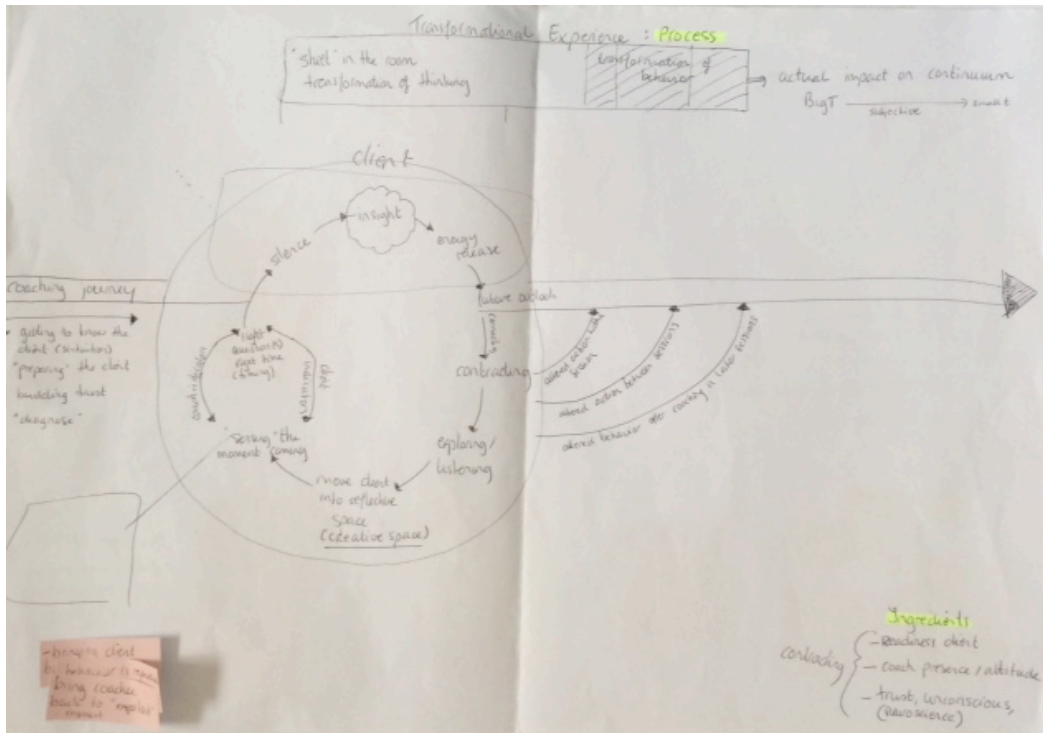 Transformational Experience : Process
"shift" in the room
transformation of thinking
transformation of
behavior
actual impact on continuum
Big T
subjective
small t
client
insight
silence
energy
release
future outlook
coaching journey
getting to know the
client (situation)
"preparing" the client
building trust
"diagnose"
right
question(s)
right time
(timing)
client
"sensing" the
moment coming
move client
into reflective
space
(creative space)
exploring/
listening
contracting
altered action within
session
altered action between sessions
altered behavior after coaching or later sessions
behavior
bring coachee
back to
moment
Ingredients
contracting
- Readiness client
- coach presence / attitude
- trust, unconscious,
(neuroscience)